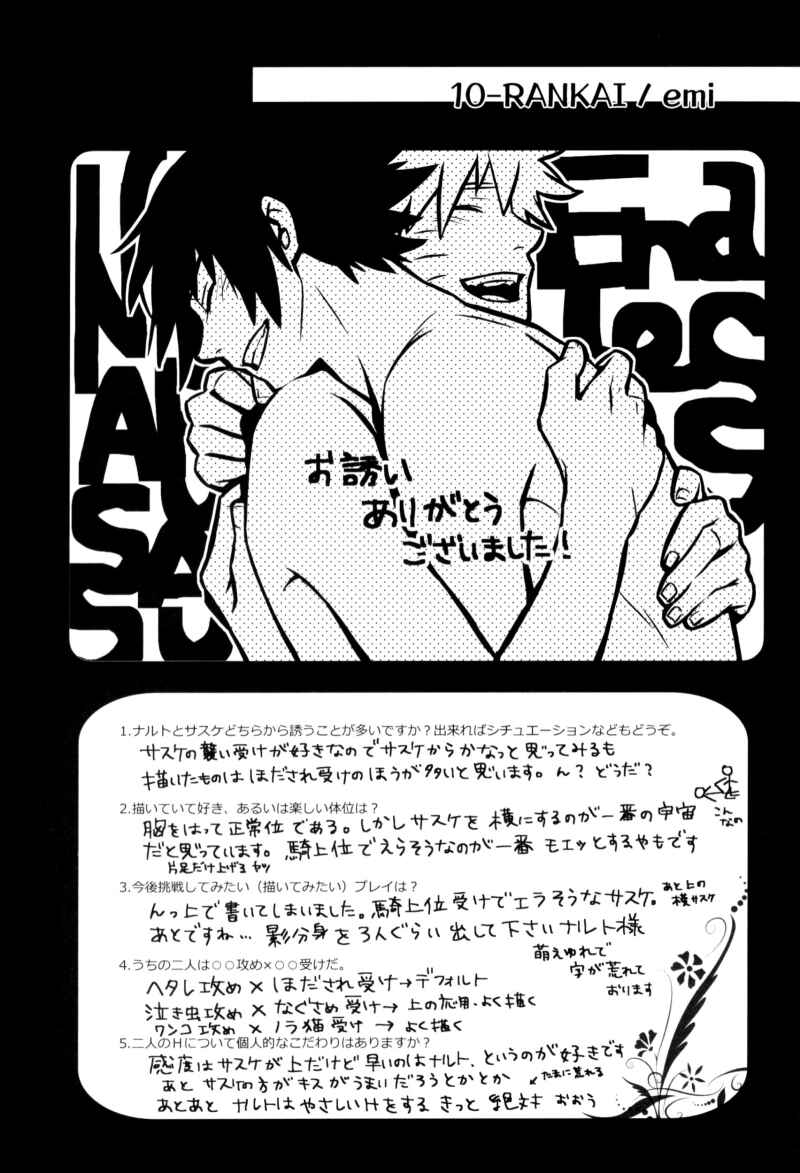 10-RANKAI / emi
お誘い
ありがとう
ございました!
1.ナルトとサスケどちらから誘うことが多いですか?出来ればシチュエーションなどもどうぞ。
サスケの襲い受けが好きなのでサスケからかなっと思ってみるも
描いたものは ほだされ受けのほうが多いと思います。ん? どうだ?
2.描いていて好き、あるいは楽しい体位は?
こんなの
胸をはって正常位である。しかしサスケを横にするのが一番の宇宙
だと思っています。騎上位でえらそうなのが一番 モエッとするやもです
片足だけ上げる ヤツ
3.今後挑戦してみたい(描いてみたい)プレイは?
んっ上で書いてしまいました。騎上位受けでエラそうなサスケ。
あと上の
横サスケ
あとですね… 影分身を3人ぐらい出して下さいナルト様
萌えゆれで
字が荒れて
おります
4.うちの二人は○○攻め×○○受けだ。
ヘタレ攻め × ほだされ受け→デフォルト
泣き虫攻め × なぐさめ受け→ 上の応用・よく描く
ワンコ攻め × ノラ猫受け → よく描く
5.二人のHについて個人的なこだわりはありますか?
感度はサスケが上だけど早いのはナルト、というのが好きです
あと サスケの方がキスがうまいだろうとかとか
たまに荒れる
あとあと ナルトはやさしいHをする きっと 絶対 おおう